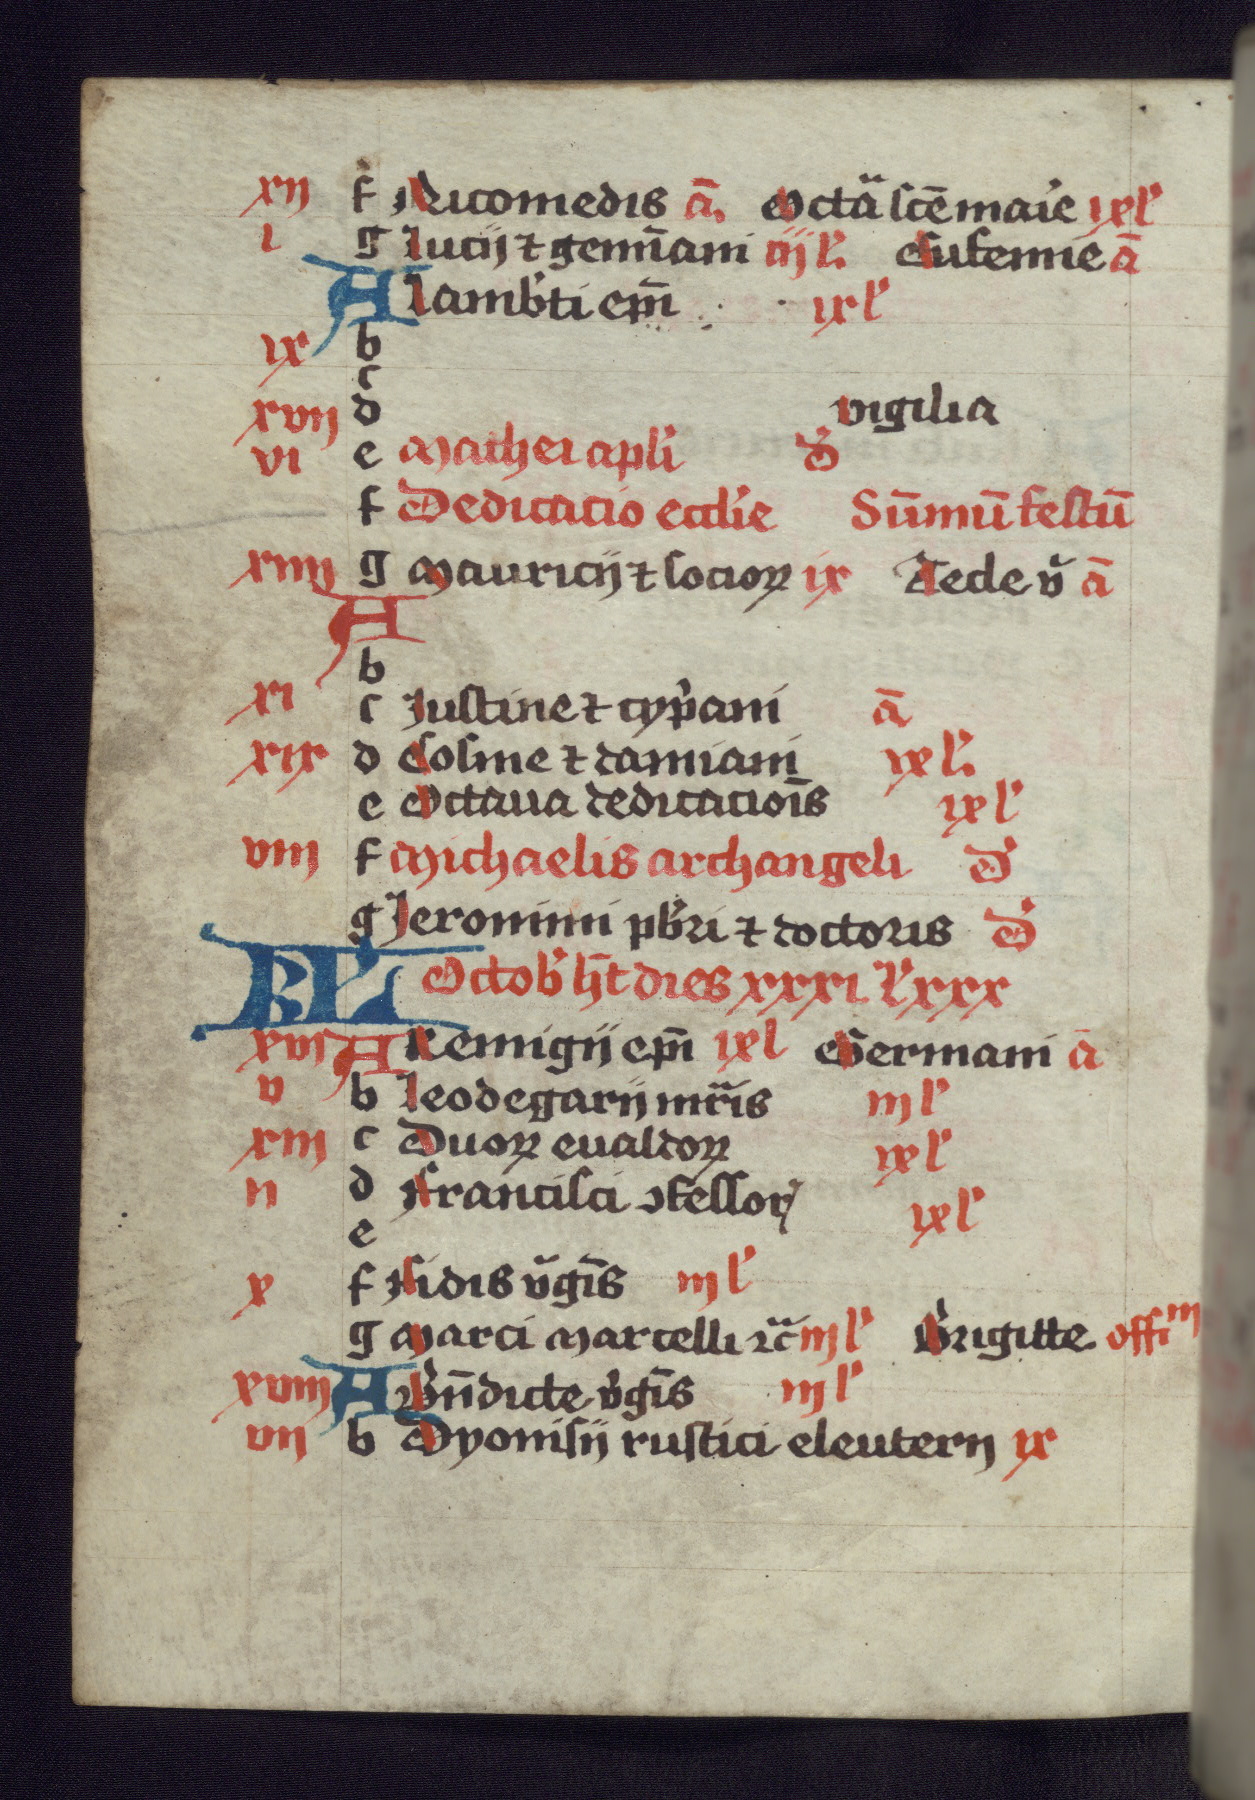 xij f Nicomedis ā. Octa̅ scē marie ixl'
i g lucij ⁊ gemīani iijl'. Eufemie ā
A lamb'ti epī ixl'
ix b
c
xvij d vigilia
vi e Mathei apl'i d'
f Dedicacio eccl'ie Sūmū festū
xiiij g Mauricij ⁊ socioꝝ ix Tecle v̄ ā
A
b
xi c Justine ⁊ cyp'ani ā
xix d Cosme ⁊ damiani ixl'.
e Octaua dedicaciōis ixl'
viij f Michaelis archangeli d'
g Jeronimi pb'ri ⁊ doctoris d'
KL' Octob' h̄t dies xxxi. l' xxx
xvi A Remigij epī ixl Germani ā
v b leodegarij mr̄is iijl'
xiij c Duoꝝ evaldoꝝ ixl'
ij d Francisci ɔfessor ixl'
e
x f Fidis v̄gīs iijl'
g Marci Marcelli ⁊c̄ iijl' Brigitte. offim
xviij A Bn̄dicte v'gīs iijl'
vij b Dyonisij rustici eleuterij ix